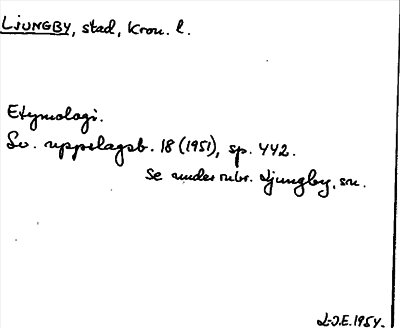 LJUNGBY, stad, Kron. l.
Etymologi.
Sv. uppslagsb. 18 (1951), sp. 442.
Se under rubr. Ljungby, sn.
L-J.E. 1954.